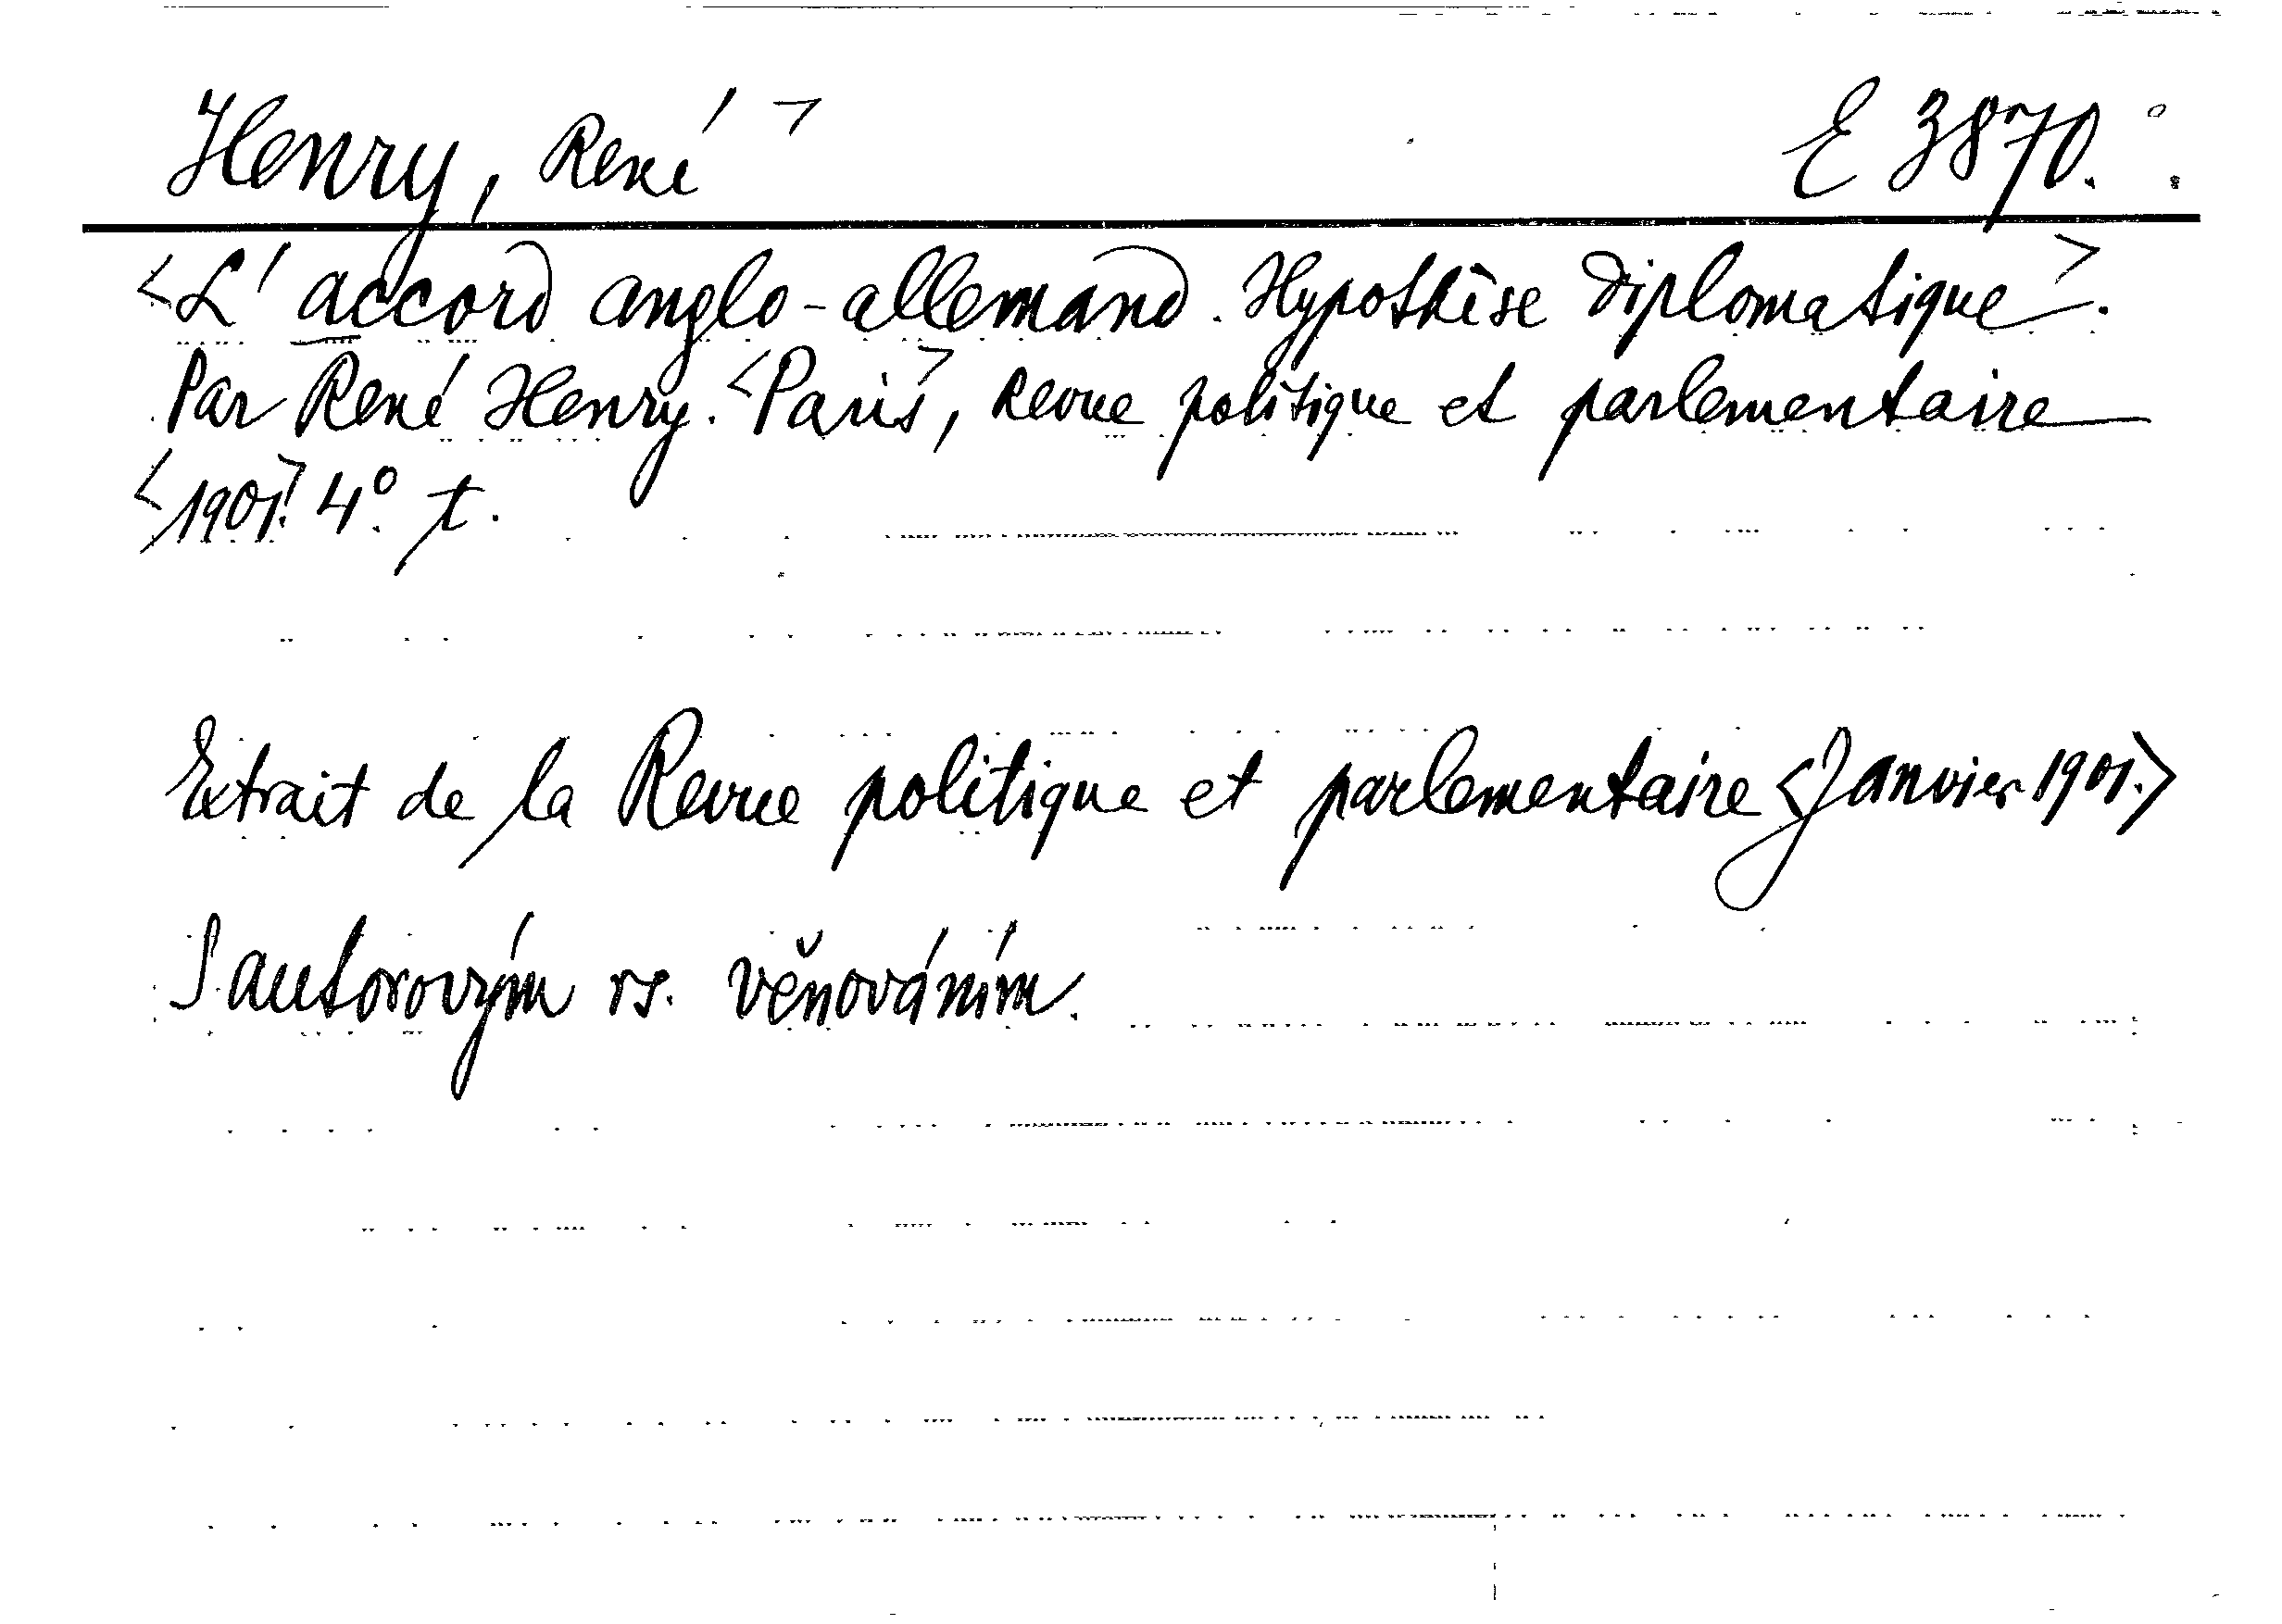 Henry, René> E 3870.
<L'accord anglo-allemand. Hypothèse diplomatique>.
Par René Henry. <Paris>, Revue politique et parlementaire
<1901>. 4°. t.
Extrait de la Revue politique et parlementaire <Janvier 1901.>
S autorovým rs. věnováním.